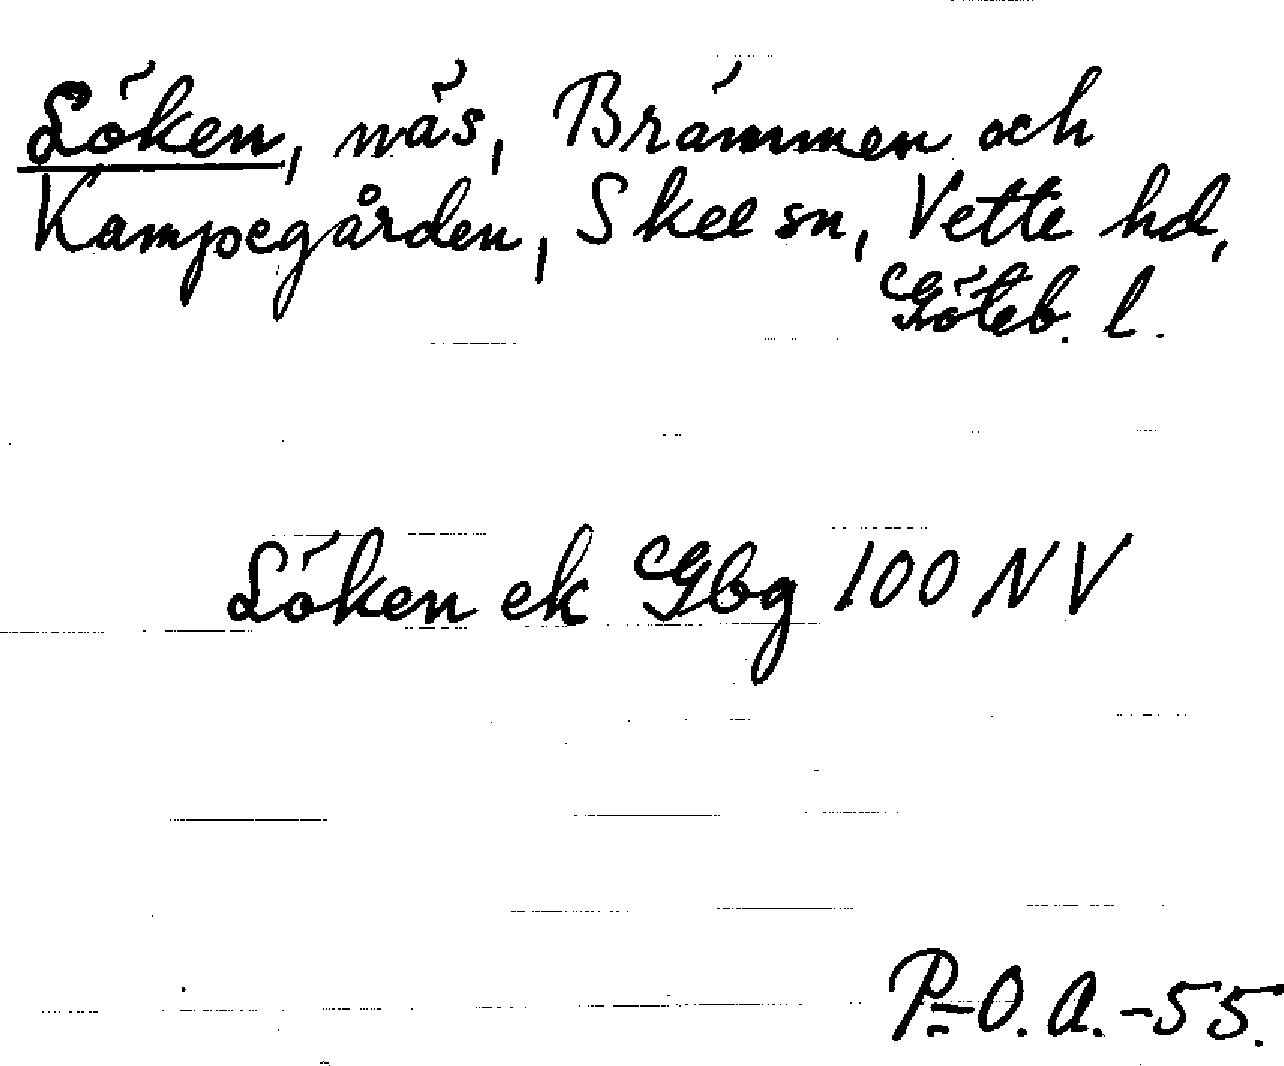 Löken, näs, Brämmen och
Kampegården, Skee sn, Vette hd,
Göteb. l.
Löken ek Gbg 100 NV
P.-O. A. -55.